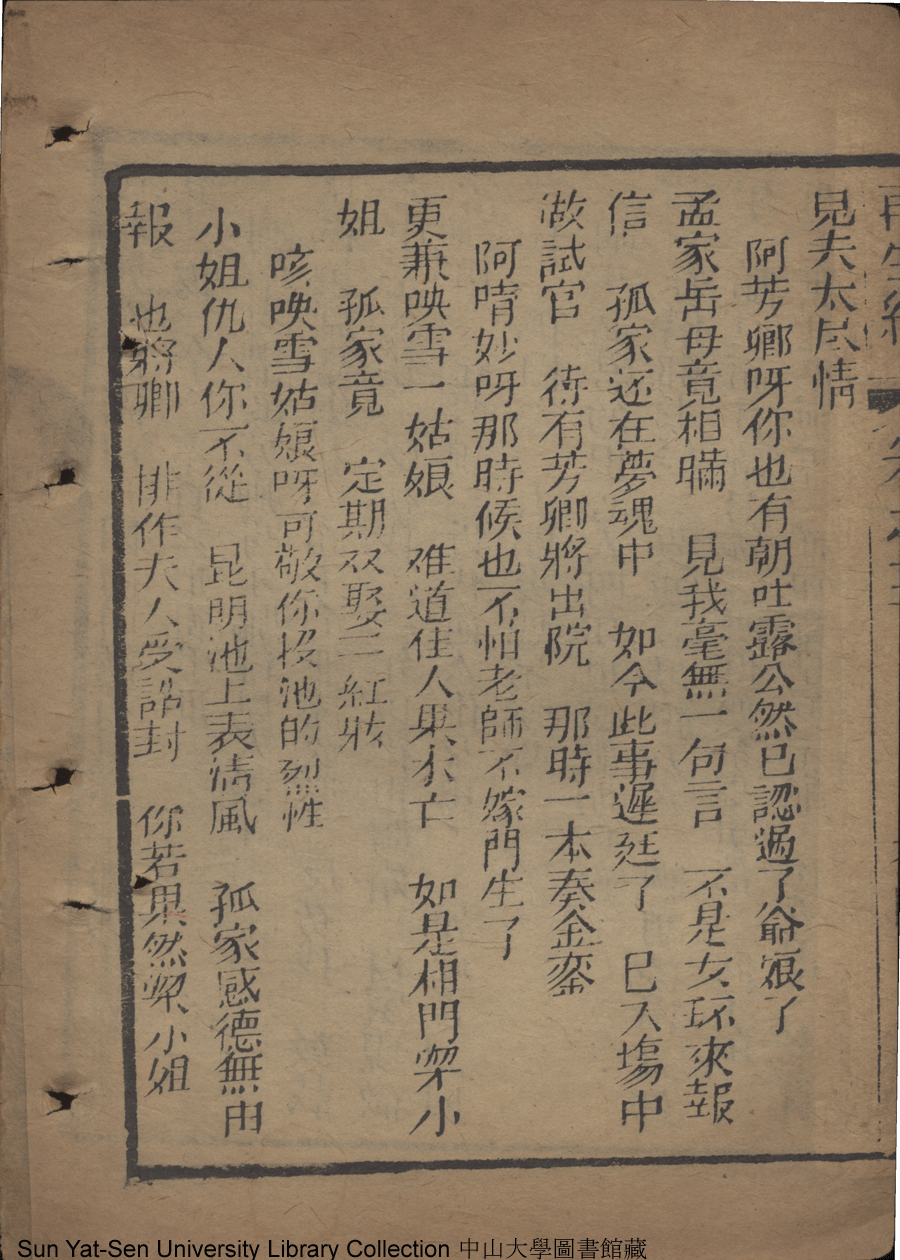 再生緣
見夫太尽情
阿芳卿呀你也有朝吐露公然已認過了爺娘了
孟家岳母竟相瞞　見我毫無一句言　不是女环來報
信　孤家还在夢魂中　如今此事遲廷了　已入塲中
做試官　待有芳卿將出院　那時一本奏金鑾
阿唷妙呀那時候也不怕老師不嫁門生了
更兼映雪一姑娘　难道佳人果未亡　如是相門梁小
姐　孤家竟　定期双娶二紅妝
咳映雪姑娘呀可敬你投池的烈性
小姐仇人你不從　昆明池上表清風　孤家感德無由
報　也將卿　排作夫人受誥封　你若果然梁小姐
Sun Yat-Sen University Library Collection 中山大學圖書館藏